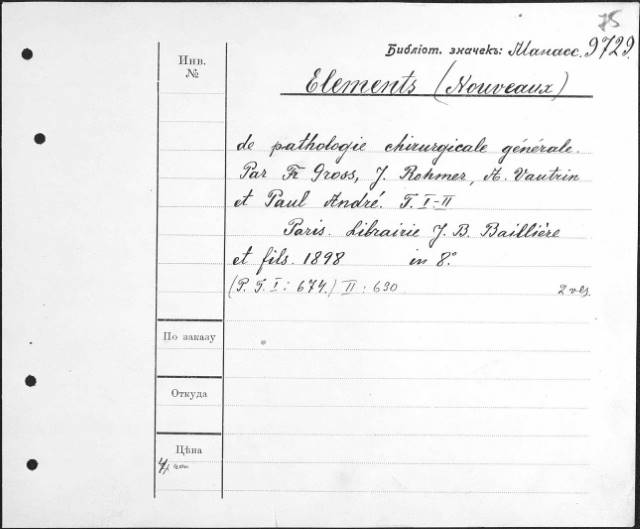 75
Библіот. значекъ: Манасс. 9729.
Инв.
№
Elements (Nouveaux)
de pathologie chirurgicale générale.
Par Fr Gross, J. Rohmer, A. Vautrin
et Paul André. T. I-II
Paris. Librairie J. B. Baillière
et fils. 1898 in 8.°
(P. T. I: 674.) II: 630 2 vls.
По заказу
Откуда
Цѣна